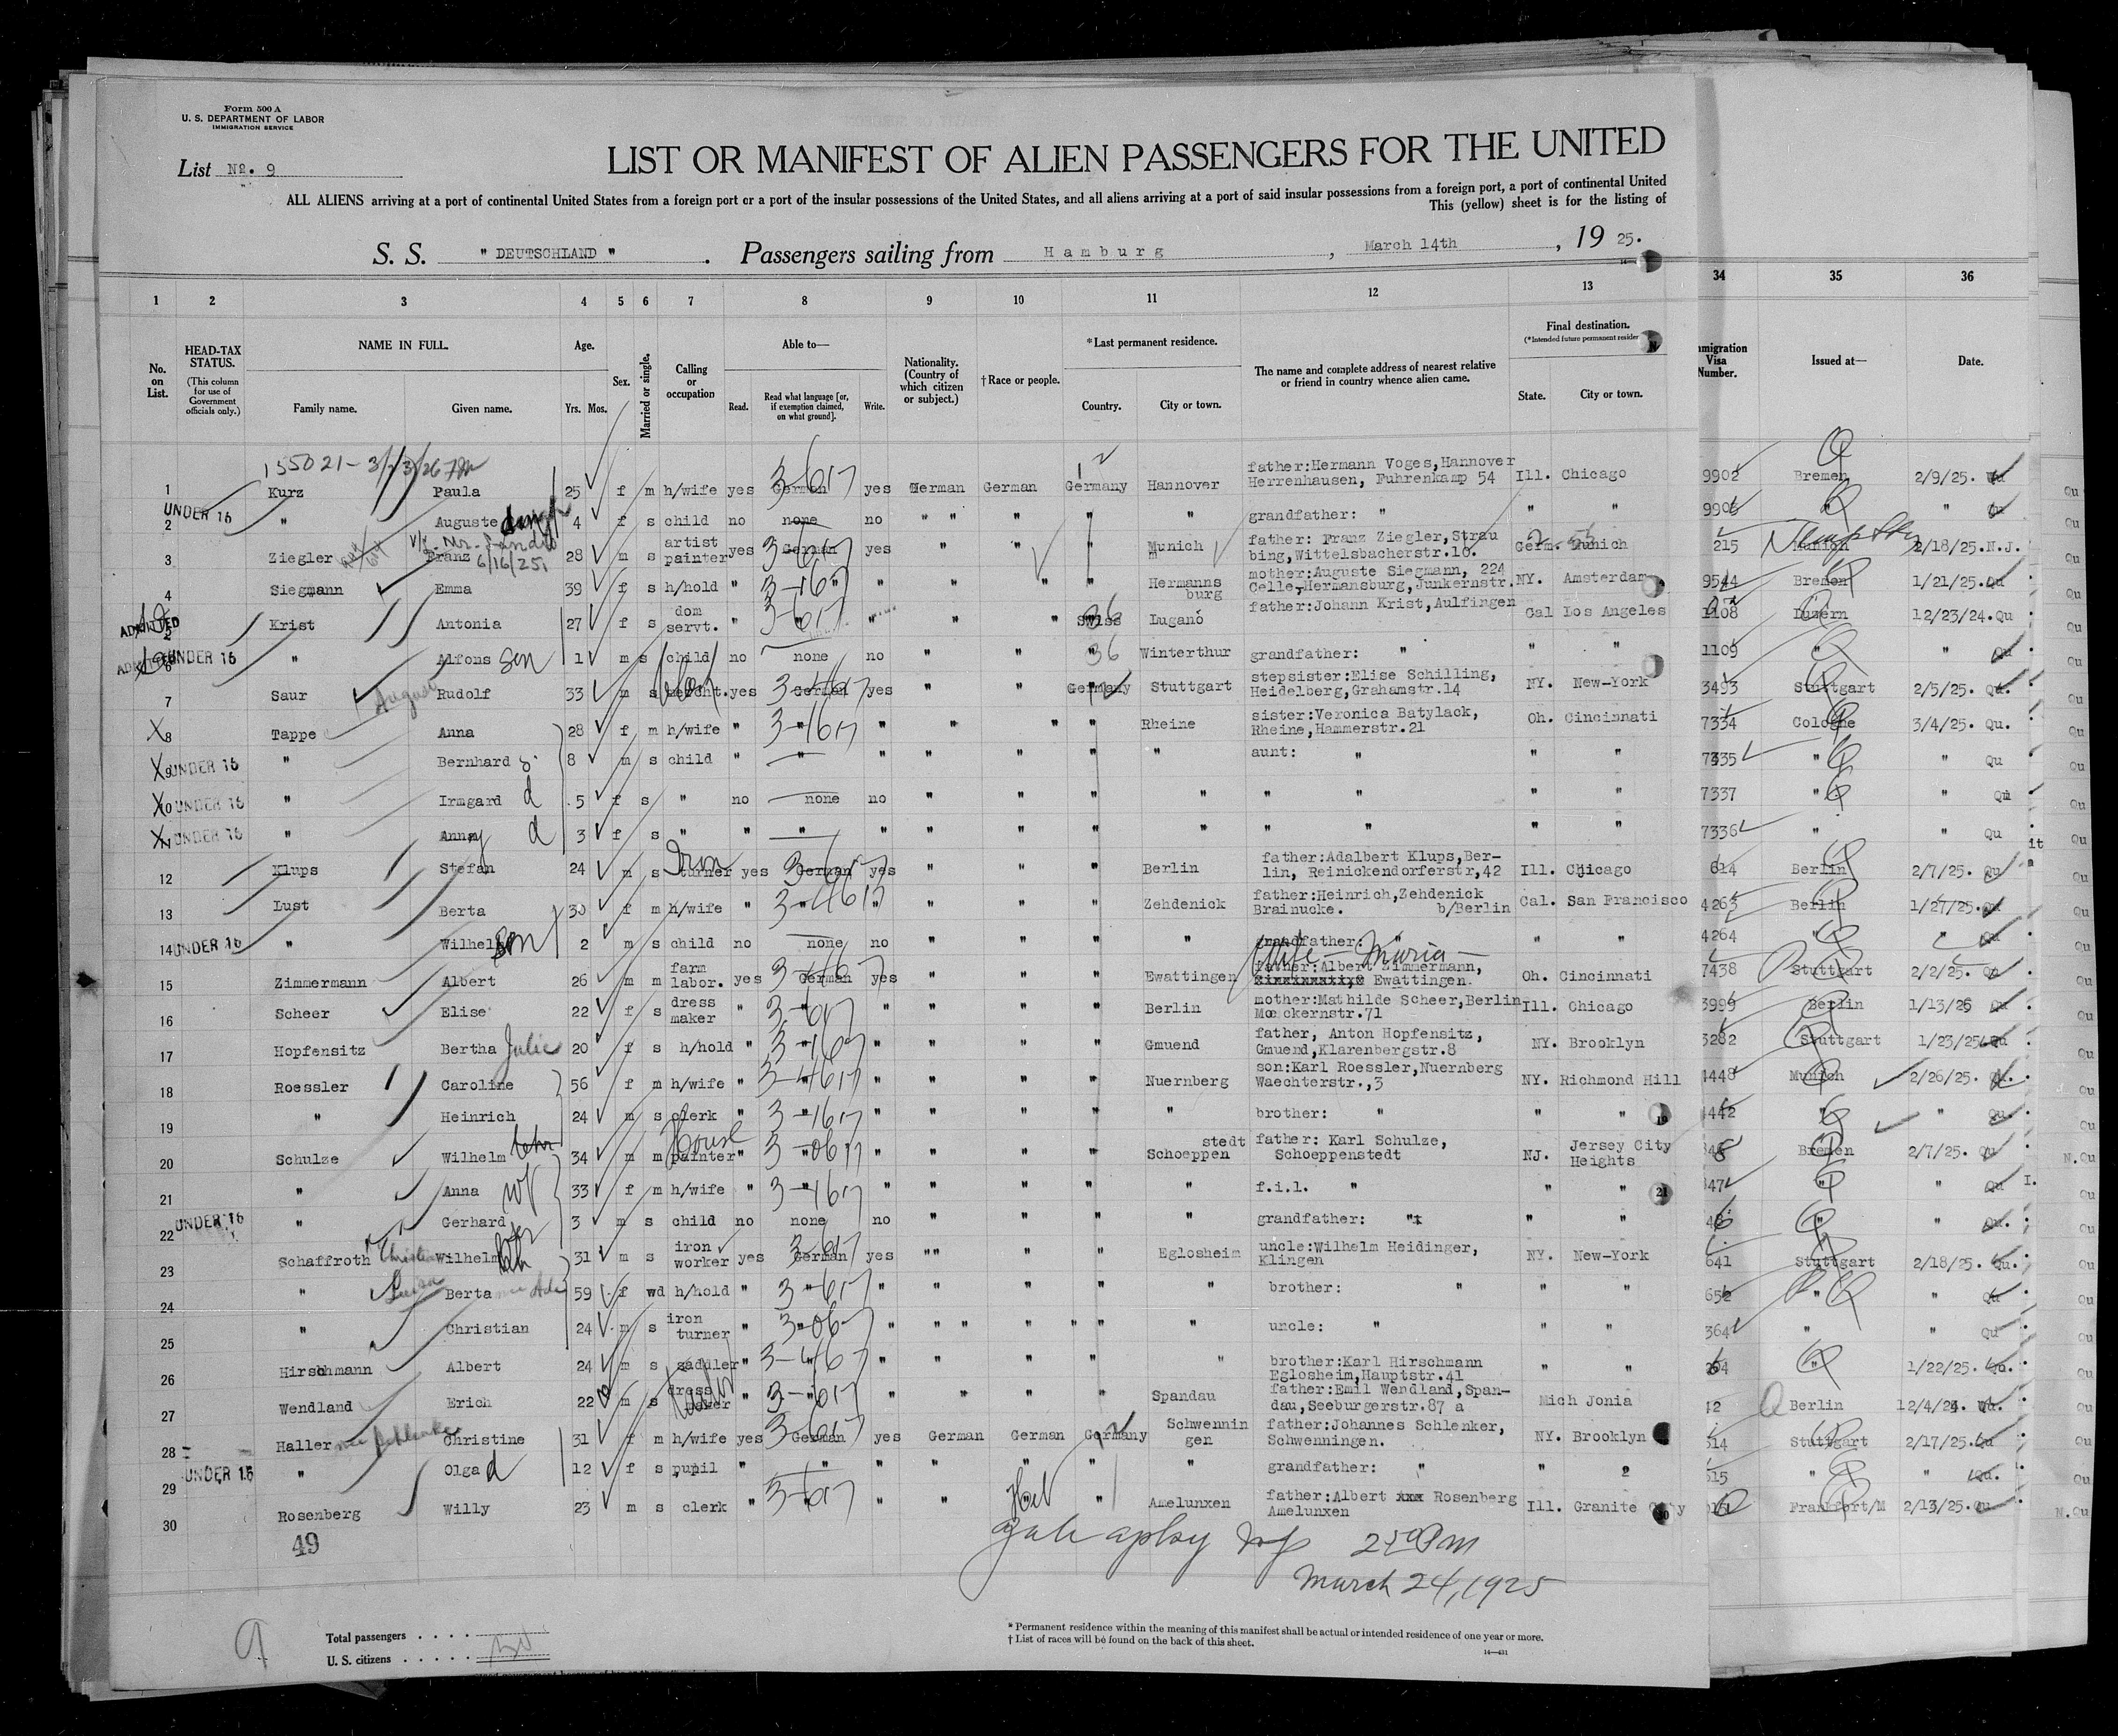 Form 500 A
U. S. DEPARTMENT OF LABOR
IMMIGRATION SERVICE
List No. 9
LIST OR MANIFEST OF ALIEN PASSENGERS FOR THE UNITED
ALL ALIENS arriving at a port of continental United States from a foreign port or a port of the insular possessions of the United States, and all aliens arriving at a port of said insular possessions from a foreign port, a port of continental United
This (yellow) sheet is for the listing of
S. S. " DEUTSCHLAND " . Passengers sailing from Hamburg , March 14th , 19 25.
1 2 3 4 5 6 7 8 9 10 11 12 13 34 35 36
No. on List.
HEAD-TAX STATUS. (This column for use of Government officials only.)
NAME IN FULL.
Family name. Given name.
Age. Yrs. Mos.
Sex.
Married or single.
Calling or occupation
Able to—
Read. Read what language [or, if exemption claimed, on what ground]. Write.
Nationality. (Country of which citizen or subject.)
† Race or people.
* Last permanent residence.
Country. City or town.
The name and complete address of nearest relative or friend in country whence alien came.
Final destination.
(* Intended future permanent residen
State. City or town.
mmigration Visa Number.
Issued at—
Date.
father:Hermann Voges,Hannover
1 Kurz Paula 25 f m h/wife yes German yes German German Germany Hannover Herrenhausen, Fuhrenkamp 54 Ill. Chicago 9902 Bremen 2/9/25. Qu
UNDER 16
2 " Auguste 4 f s child no none no " " " " " grandfather: " " " " " Qu
3 Ziegler Franz 6/16/25 28 m s artist painter yes German yes " " " Munich father: Franz Ziegler,Strau bing,Wittelsbacherstr.10. Germ. Munich 215 Munich 2/18/25.N.J.
4 Siegmann Emma 39 f s h/hold " " " " " " Hermanns burg mother:Auguste Siegmann, 224 Celle,Hermansburg,Junkernstr. NY. Amsterdam 9544 Bremen 1/21/25.Qu
ADMITTED
5 Krist Antonia 27 f s dom servt. " " " " " Swiss Lugano father:Johann Krist,Aulfingen Cal Los Angeles 1108 Luzern 12/23/24.Qu
ADMITTED UNDER 16
6 " Alfons son 1 m s child no none no " " " Winterthur grandfather: " " " 1109 " " Qu
7 Saur August Rudolf 33 m s mercht. yes German yes " " Germany Stuttgart stepsister:Elise Schilling, Heidelberg,Grahamstr.14 NY. New-York 3493 Stuttgart 2/5/25. Qu.
8 Tappe Anna 28 f m h/wife " " " " " " Rheine sister:Veronica Batylack, Rheine,Hammerstr.21 Oh. Cincinnati 7334 Cologne 3/4/25. Qu.
9 UNDER 16 " Bernhard s. 8 m s child " " " " " " " aunt: " " " 7335 " " Qu
10 UNDER 16 " Irmgard d 5 f s " no none no " " " " " " " " 7337 " " Qu
11 UNDER 16 " Anny d 3 f s " " " " " " " " " " " " 7336 " " Qu
12 Klups Stefan 24 m s Iron turner yes German yes " " " Berlin father:Adalbert Klups,Ber- lin, Reinickendorferstr,42 Ill. Chicago 614 Berlin 2/7/25. Qu
13 Lust Berta 30 f m h/wife " " " " " " Zehdenick father:Heinrich,Zehdenick Brainucke. b/Berlin Cal. San Francisco 4263 Berlin 1/27/25.Qu
14 UNDER 16 " Wilhelm son 2 m s child no none no " " " " grandfather: " " " 4264 " " Qu
Wife — Maria —
15 Zimmermann Albert 26 m m farm labor. yes German yes " " " Ewattingen father:Albert Zimmermann, Ewattingen. Oh. Cincinnati 7438 Stuttgart 2/2/25. Qu
16 Scheer Elise 22 f s dress maker " " " " " " Berlin mother:Mathilde Scheer,Berlin Moeckernstr.71 Ill. Chicago 3999 Berlin 1/13/25 Qu
17 Hopfensitz Bertha Julie 20 f s h/hold " " " " " " Gmuend father, Anton Hopfensitz, Gmuend,Klarenbergstr.8 NY. Brooklyn 3282 Stuttgart 1/23/25 Qu
18 Roessler Caroline 56 f m h/wife " " " " " " Nuernberg son:Karl Roessler,Nuernberg Waechterstr.,3 NY. Richmond Hill 4448 Munich 2/26/25. Qu.
19 " Heinrich 24 m s clerk " " " " " " " brother: " " " 4442 " " Qu.
20 Schulze Wilhelm 34 m m House painter " " " " " " Schoeppen stedt father: Karl Schulze, Schoeppenstedt NJ. Jersey City Heights Bremen 2/7/25. Qu
21 " Anna wf 33 f m h/wife " " " " " " " f.i.l. " " " 347 " " Qu
UNDER 16
22 " Gerhard 3 m s child no none no " " " " grandfather: " " " " " Qu.
23 Schaffroth Christian Wilhelm 31 m s iron worker yes German yes " " " " Eglosheim uncle:Wilhelm Heidinger, Klingen NY. New-York 641 Stuttgart 2/18/25. Qu.
24 " Berta 59 f wd h/hold " " " " " " " brother: " " " 652 " " Qu
25 " Christian 24 m s iron turner " " " " " " " " " uncle: " " " 364 " " Qu
26 Hirschmann Albert 24 m s saddler " " " " " " " brother:Karl Hirschmann Eglosheim,Hauptstr.41 " " " 1/22/25. Qu.
27 Wendland Erich 22 m s dress maker " " " " " " Spandau father:Emil Wendland,Span- dau,Seeburgerstr.87 a Mich Jonia 42 Berlin 12/4/24. Qu.
28 Haller nee Schlenker Christine 31 f m h/wife yes German yes German German Germany Schwennin gen father:Johannes Schlenker, Schwenningen. NY. Brooklyn 514 Stuttgart 2/17/25.Qu
UNDER 16
29 " Olga d 12 f s pupil " " " " " " " grandfather: " " " 515 " " Qu.
30 Rosenberg Willy 23 m s clerk " " " " Heb " Amelunxen father:Albert Rosenberg Amelunxen Ill. Granite City Frankfort/M 2/13/25.Qu
49
2 50 Pm
March 24, 1925
9
Total passengers . . . .
U. S. citizens . . . . .
* Permanent residence within the meaning of this manifest shall be actual or intended residence of one year or more.
† List of races will be found on the back of this sheet.
14—431